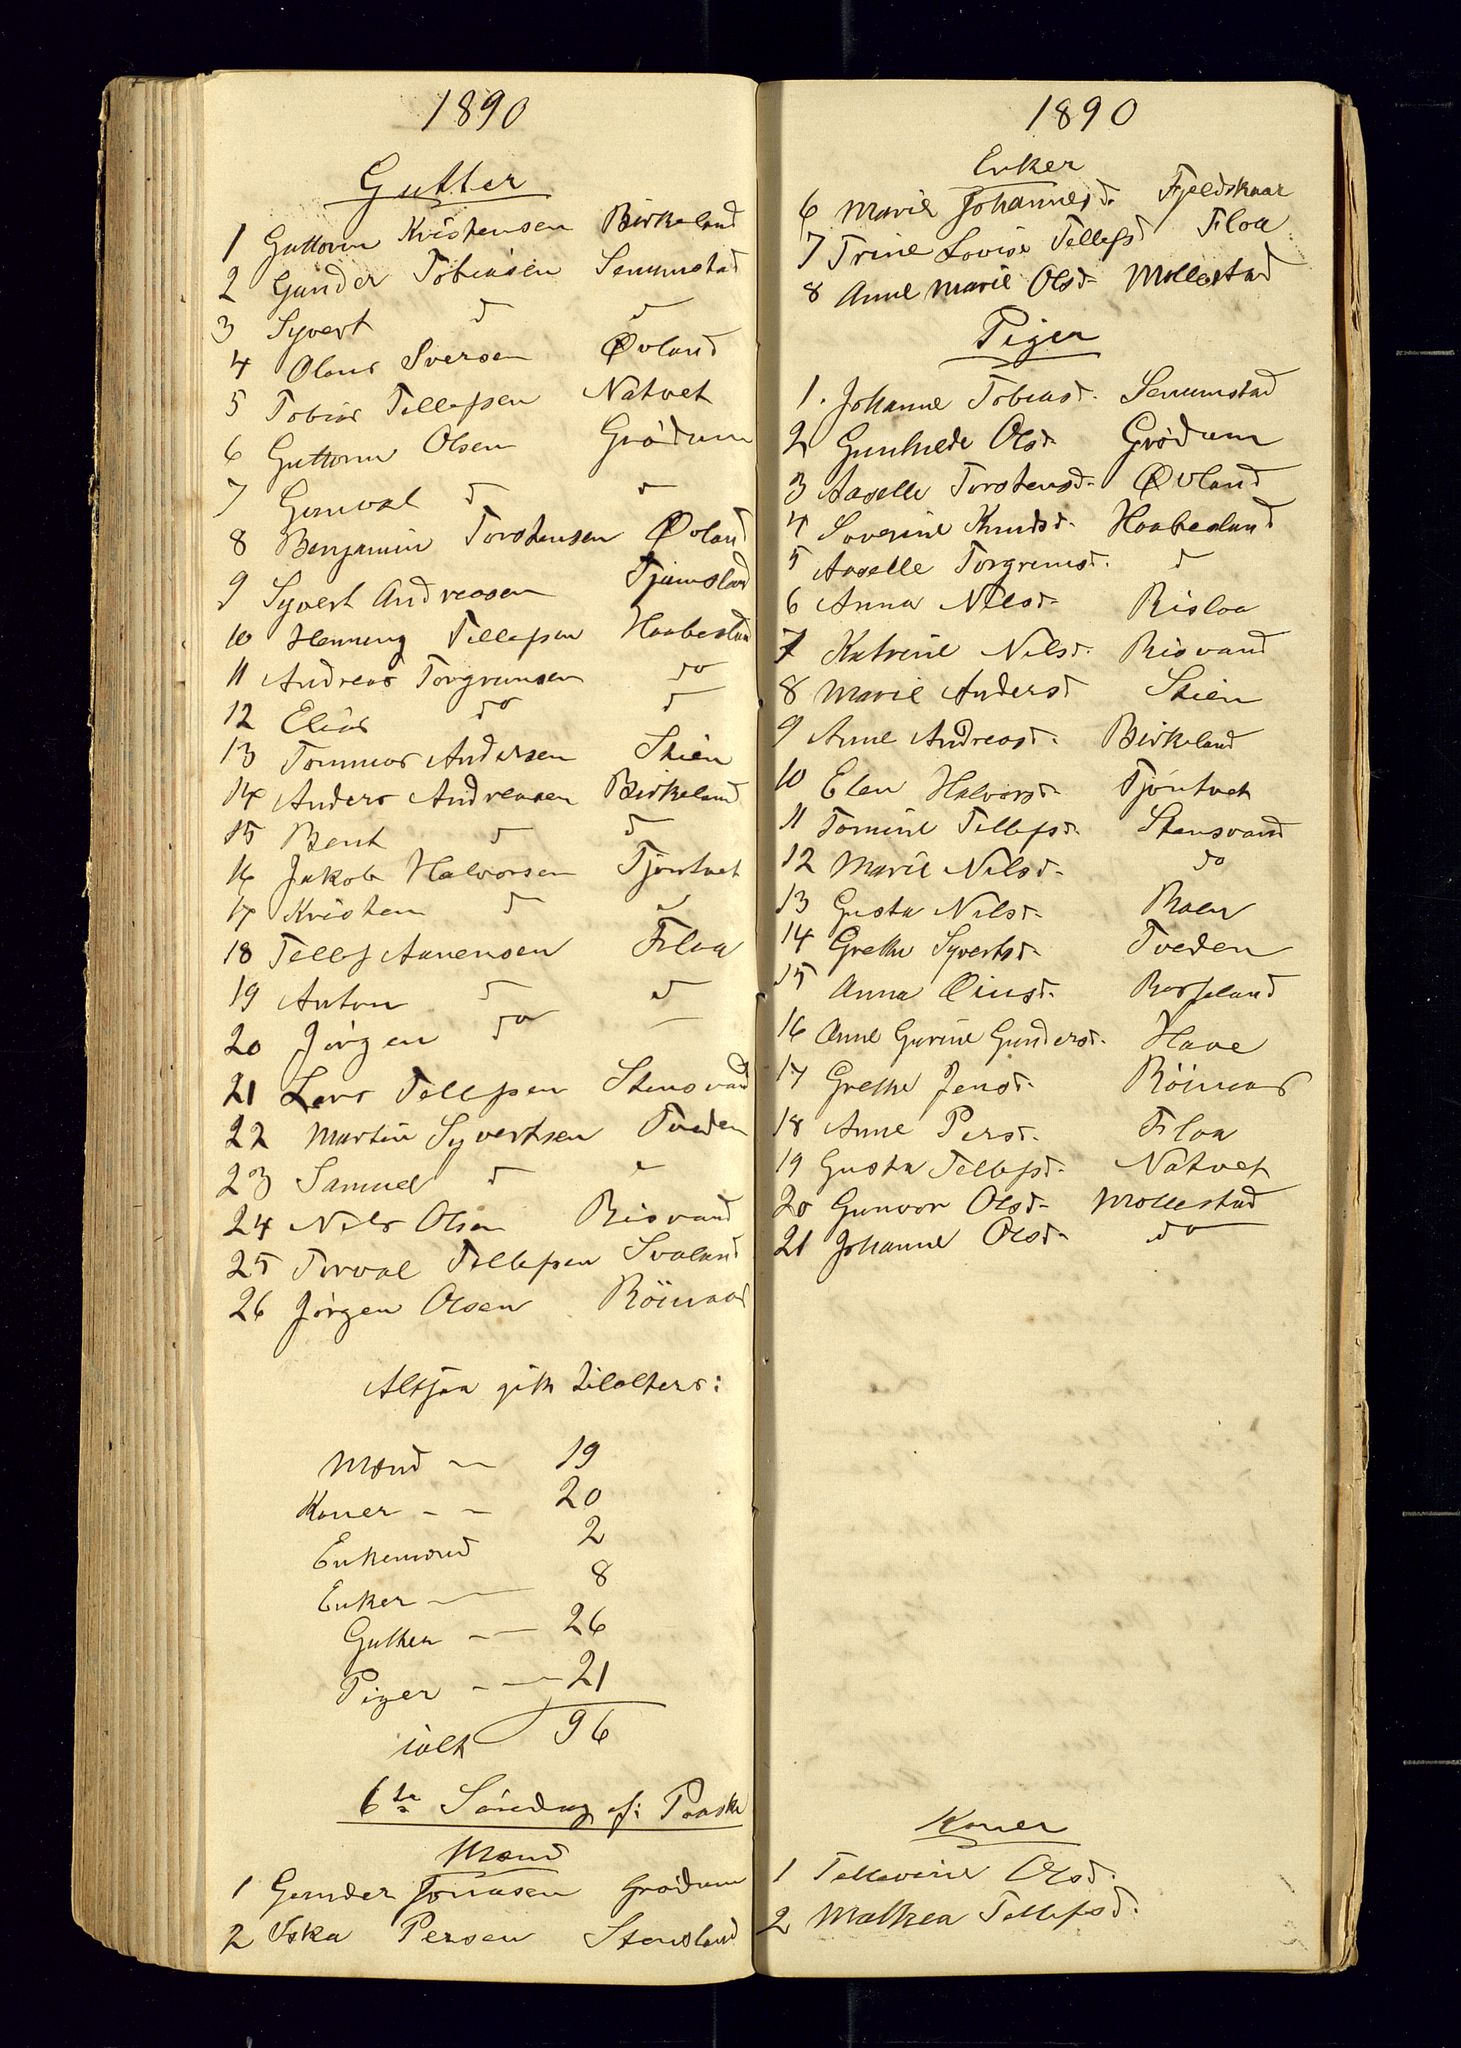 1890
Gutter
1 Guttorm Kristensen Birkeland
2 Gunder Tobiasen Senumstad
3 Syvert d d
4 Olaus Iversen Øvland
5 Tobias Tellefsen Natvet
6 Guttorm Olsen Grödum
7 Gunval d d
8 Benjamin Torstensen Øvland
9 Syvert Andreasen Tjømsland
10 Henning Tellefsen Haabesland
11 Andreas Torgrimsen do
12 Elias do d
13 Tommas Andersen Stien
14 Anders Andreasen Birkeland
15 Bent d d
16 Jakob Halvorsen Tjöntvet
17 Kristen d d
18 Tellef Aanensen Floa
19 Anton d d
20 Jörgen do —
21 Lars Tellefsen Stensvand
22 Martin Syvertsen Tveden
23 Samuel d d
24 Nils Olsen Risvand
25 Torval Tellefsen Svaland
26 Jörgen Olsen Röinaas
Altsaa gik tilalters:
Mænd — 19
Koner — — 20
Enkemænd 2
Enker — 8
Gutter — — 26
Piger — — 21
ialt 96
6te Söndag ef: Paaske
Mænd
1 Gunder Jonasen Grödum
2 Aska Persen Stensland
1890
Enker
6 Marie Johannesd. Fjeldskaar
7 Trine Lovise Tellefsd Floa
8 Anne Marie Olsd. Mollestad
Piger
1. Johanne Tobiasd. Senumstad
2 Gunhilde Olsd. Grödum
3 Aaselle Torstensd. Øvland
4 Soverine Knudsd. Haabesland
5 Aaselle Torgrimsd. d
6 Anna Nilsd. Risloa
7 Katrine Nilsd. Risvand
8 Marie Andersd Stien
9 Anne Andreasd. Birkeland
10 Elen Halvorsd. Tjöntvet
11 Tomine Tellefsd. Stensvand
12 Marie Nilsd. do
13 Gusta Nilsd. Roen
14 Grethe Syvertsd. Tveden
15 Anna Einsd. Rosseland
16 Anne Gurine Gundersd. Have
17 Grethe Jensd. Röinaas
18 Anne Persd. Floa
19 Gusta Tellefsd. Natvet
20 Gunvor Olsd. Mollestad
21 Johanne Olsd. do
Koner
1 Tellevine Olsd.
2 Mathea Tellefsd.